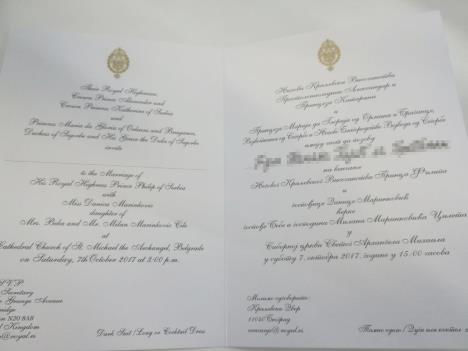 Their Royal Highnesses,
Crown Prince Alexander and
Crown Princess Katherine of Serbia
and
Princess Maria da Gloria of Orleans and Braganza,
Duchess of Segorbe and His Grace the Duke of Segorbe
invite
to the Marriage of
His Royal Highness Prince Philip of Serbia
with
Miss Danica Marinkovic
daughter of
Mrs. Beba and Mr. Milan Marinkovic Cile
at
Cathedral Church of St. Michael the Archangel, Belgrade
on Saturday, 7th October 2017 at 3:00 p.m.
Secretary
Grange Avenue
London N20 8AB
Kingdom
Dark Suit / Long or Cocktail Dress
Њихова Краљевска Височанства
Престолонаследник Александар и
Принцеза Катарина
и
Принцеза Марија да Глорија од Орлеана и Браганце,
Војвоткиња од Сегорба и Њихово
имају част да позову
на венчање
Његовог Краљевског Височанства Принца Филипа
и
госпођице Данице Маринковић
кћерке
госпође Бебе и господина Милана Маринковића Цилета
у
Саборној цркви Светог Архангела Михаила
у суботу 7. октобра 2017. године у 15.00 часова
Молимо одговорите:
Краљевски Двор
11040 Београд
Тамно одело / Дуга или коктел